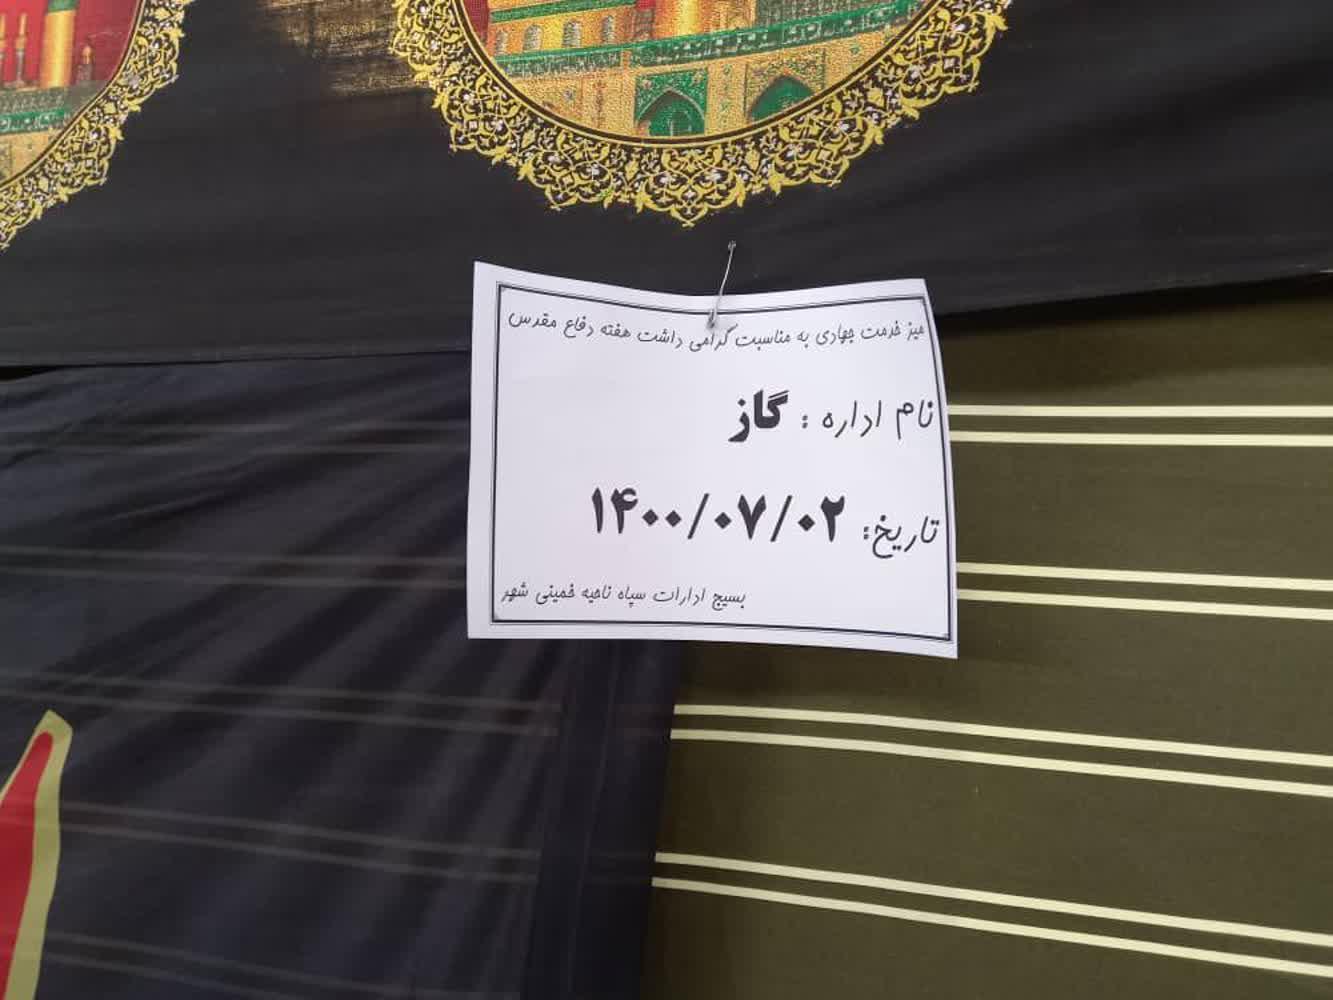 میز خدمت جهادی به مناسبت گرامی داشت هفته دفاع مقدس
نام اداره : گاز
تاریخ: ۱۴۰۰/۰۷/۰۲
بسیج ادارات سپاه ناحیه خمینی شهر